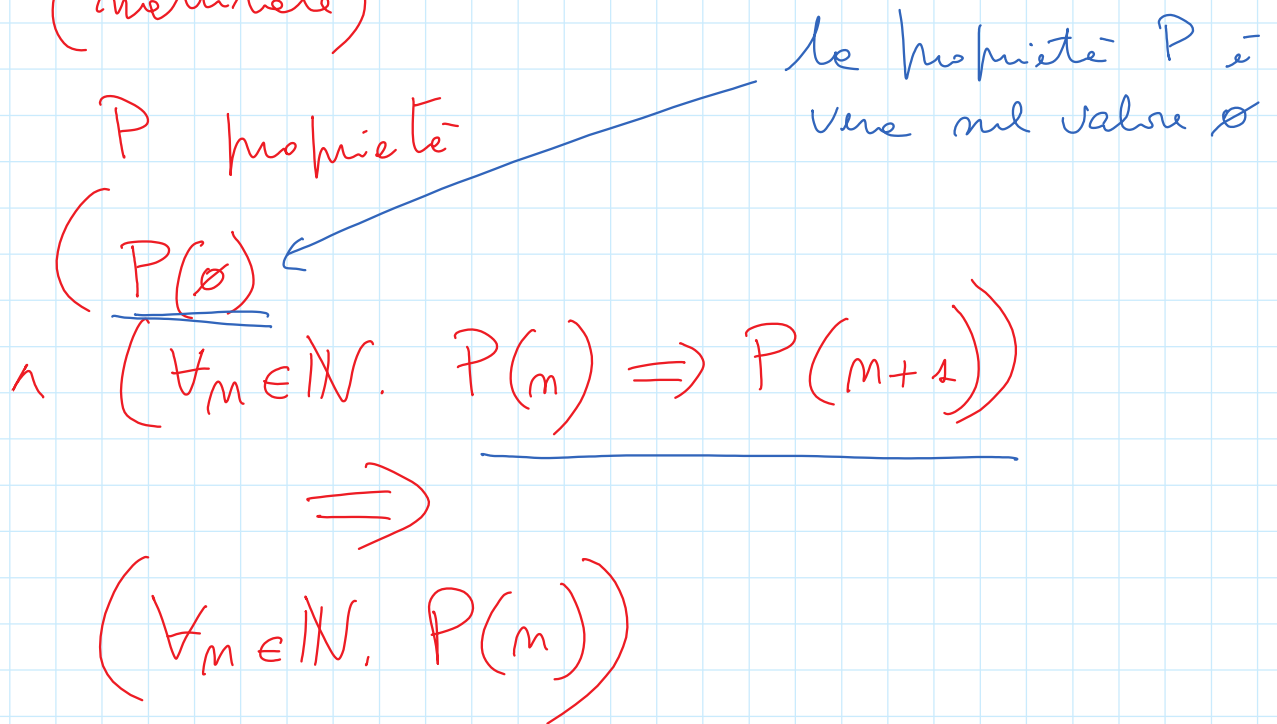 la proprietà P è
vera sul valore 0
P proprietà
( P(0)
∧ ( ∀n∈ℕ. P(n) ⟹ P(n+1) ) )
⟹
( ∀n∈ℕ. P(n) )